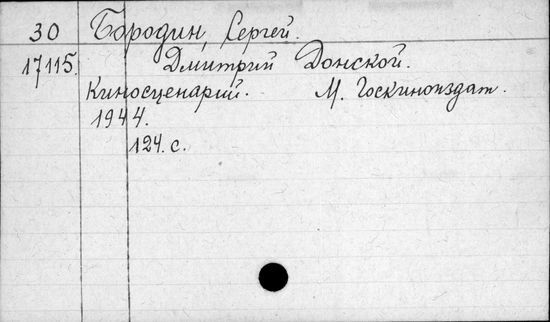 30 Бородин, Сергей.
17115. Дмитрий Донской.
Киносценарий. М. Госкиноиздат.
1944.
124. с.